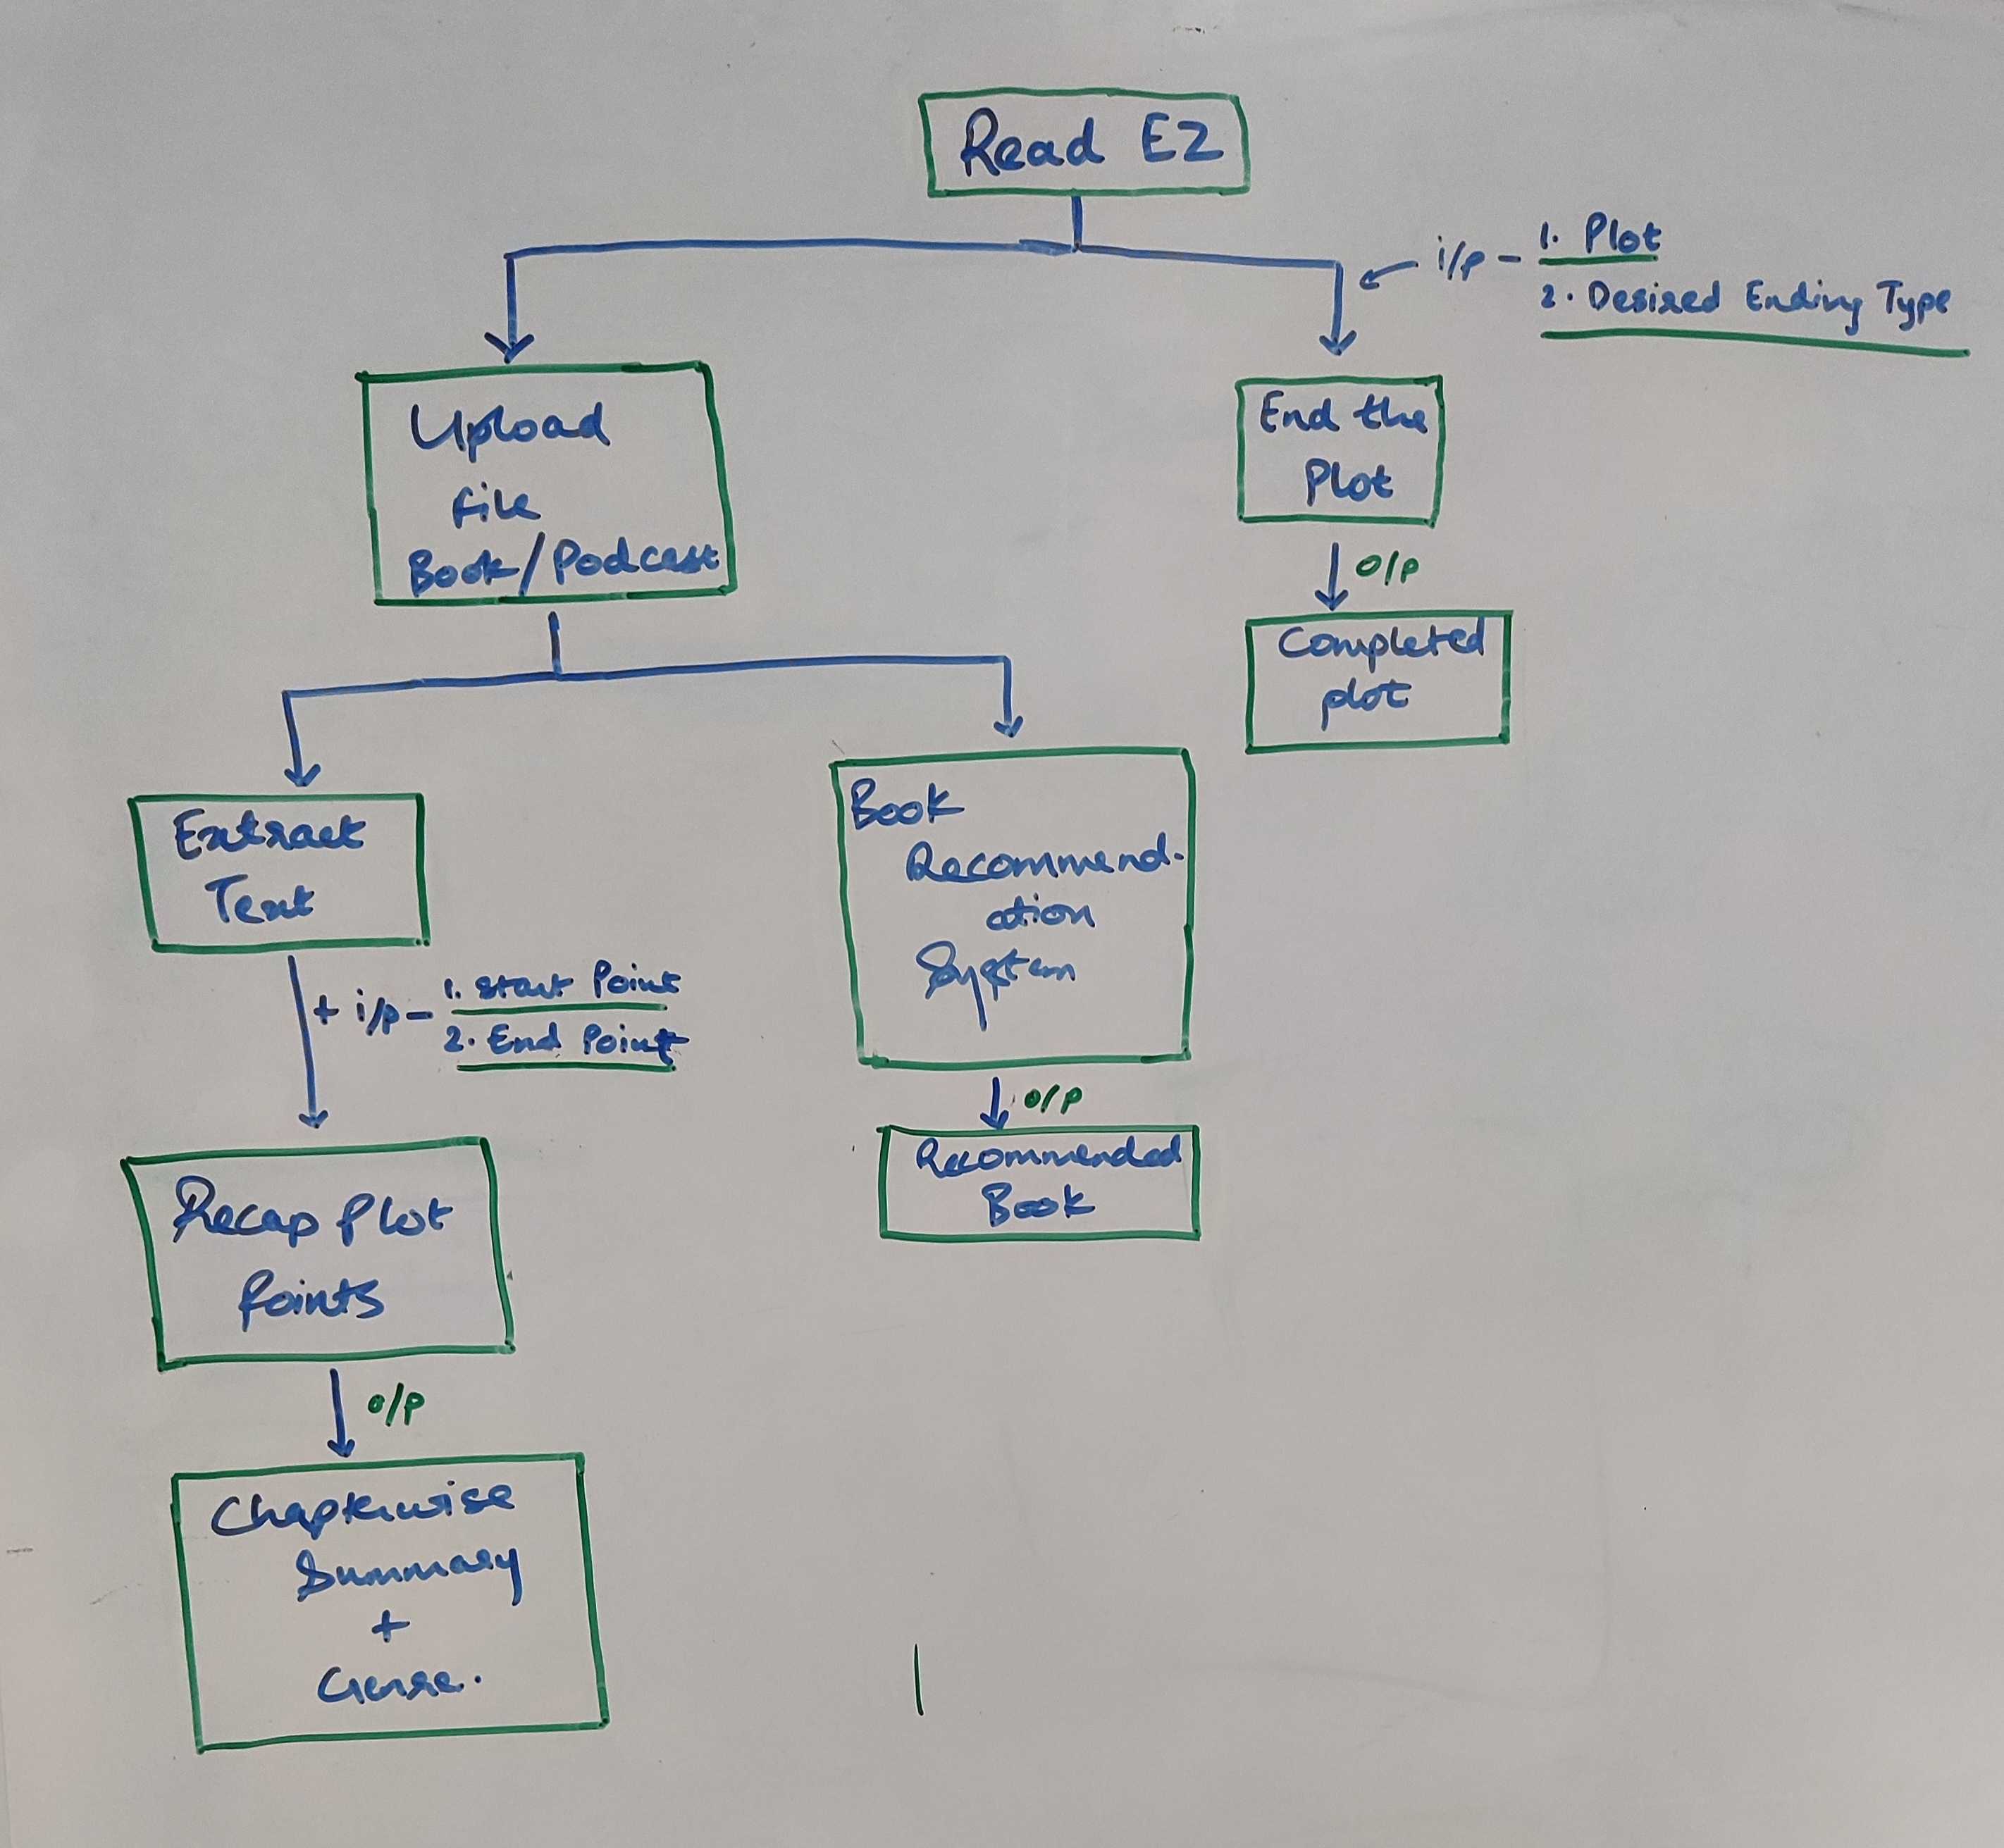 Read EZ
i/p - 1. Plot
2. Desired Ending Type
Upload
file
Book/Podcast
End the
Plot
O/P
Completed
plot
Extract
Text
+ i/p - 1. Start Point
2. End Point
Book
Recommend-
ation
System
O/P
Recommended
Book
Recap Plot
Points
O/P
Chapterwise
Summary
+
Genre.